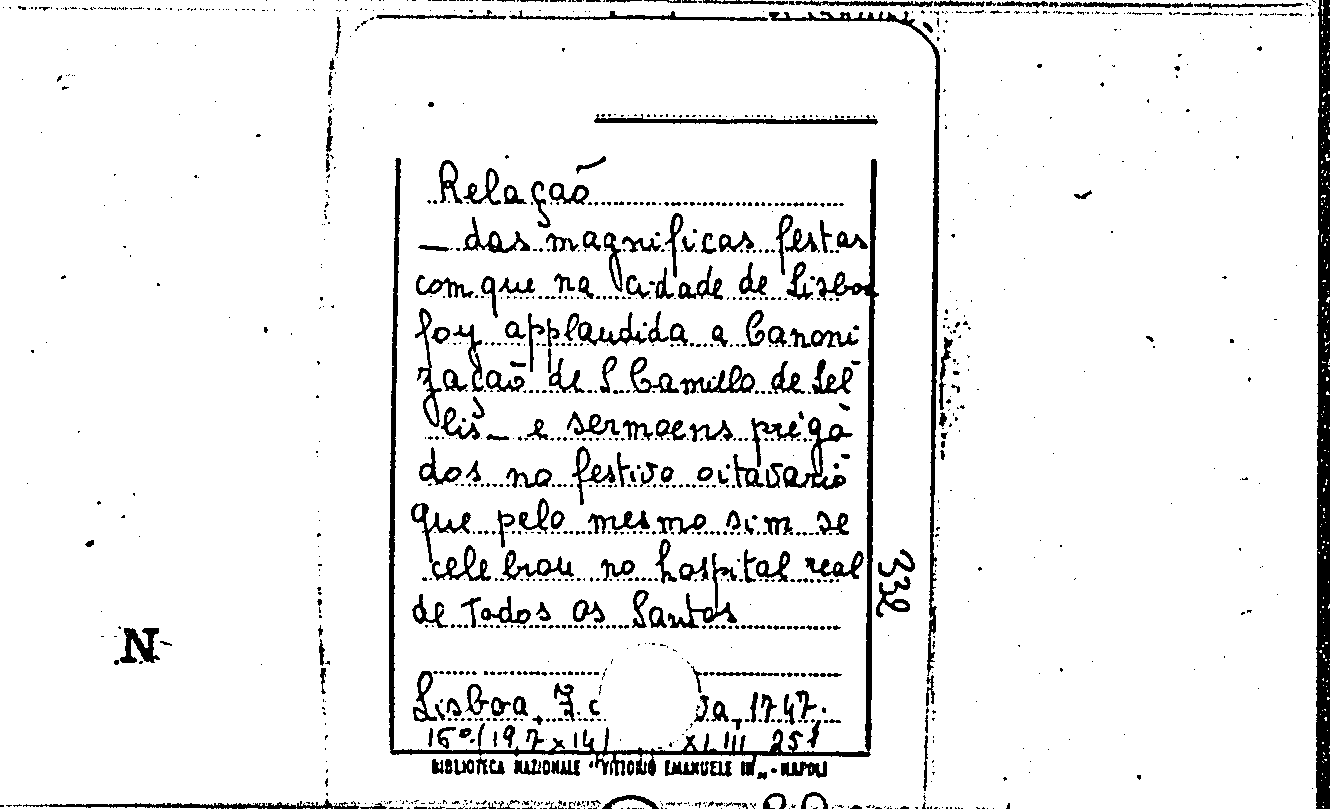 Relação
_ das magnificas festas
com que na Cidade de Lisboa
foy applaudida a Canoni
zacaõ de S. Camillo de Lel
lis _ e sermoens prégá
dos no festivo oitavario
que pelo mesmo sim se
celebrou no hospital real
de Todos os Santos
332
N
Lisboa, 1747.
16º (19,7 x 14) XLIII 251
BIBLIOTECA NAZIONALE "VITTORIO EMANUELE III" - NAPOLI